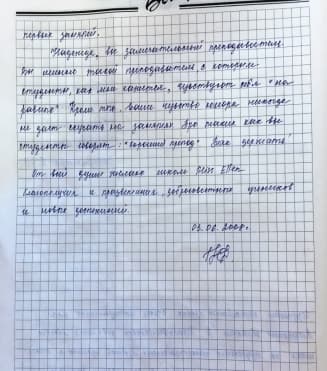 первых занятий.
Надежда, вы замечательный преподаватель.
Вы именно такой преподаватель, с которым
студенты, как мне кажется, чувствуют себя "на
равных". Кроме того, ваше чувство юмора никогда
не дает скучать на занятиях. Про таких как вы
студенты говорят: "хороший препод". Так держать!
От всей души желаю школе
процветания, добросовестных учеников
и новых достижений.
03.06.2008г.